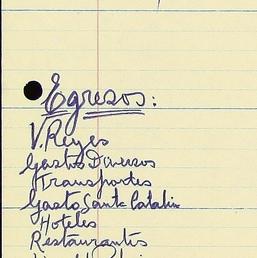 Egresos:
V. Reyes
Gastos Diversos
Transportes
Gasto Santa Catalin
Hoteles
Restaurantes